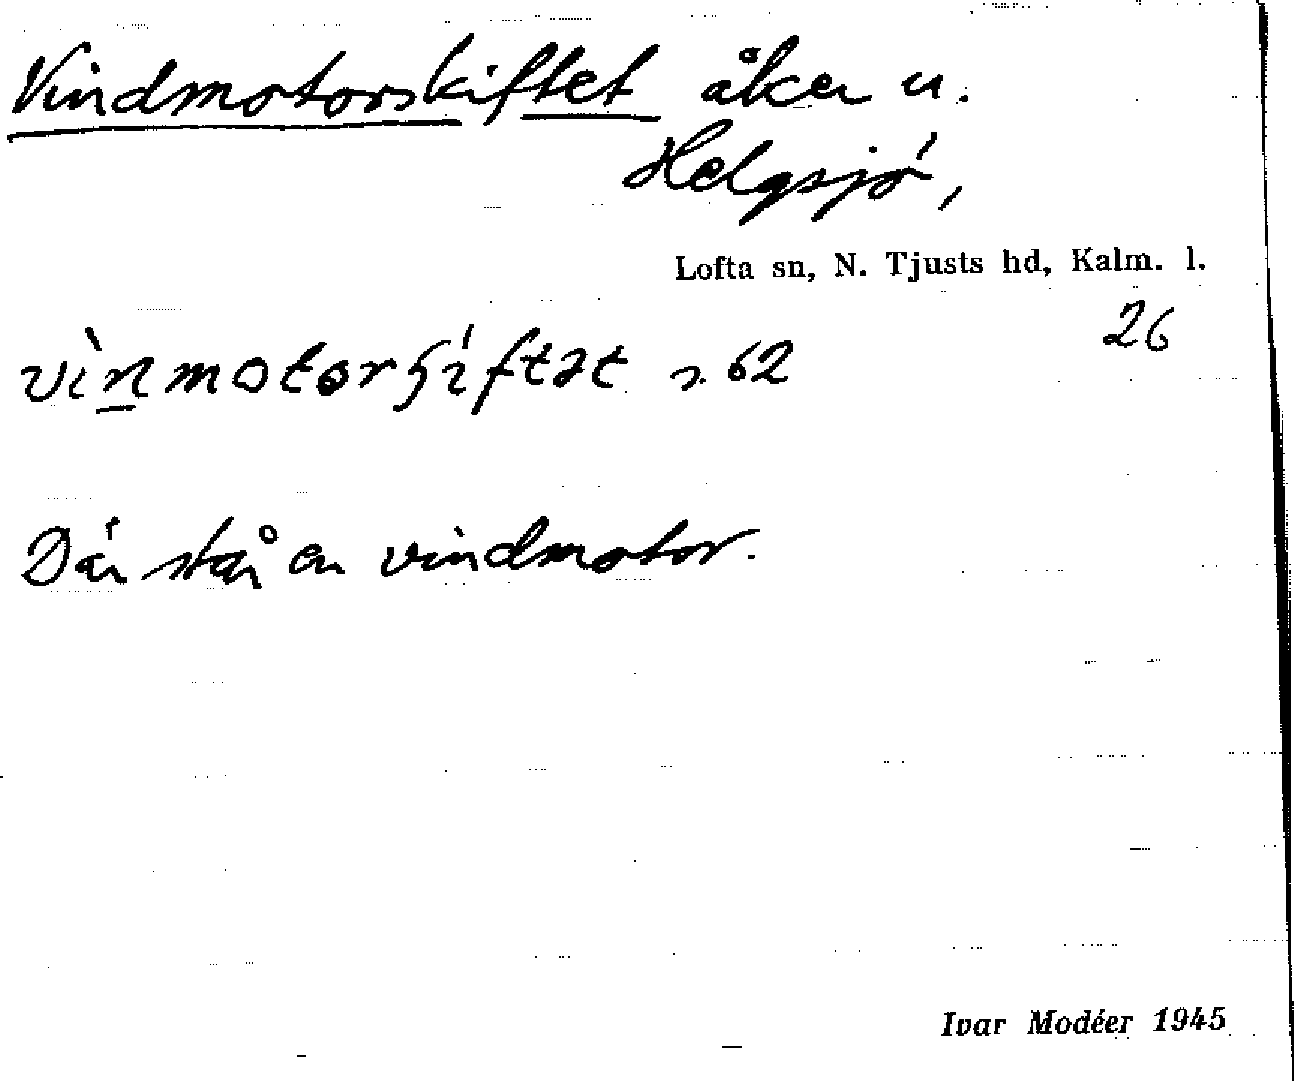 Vindmotorskiftet åker u.
Helgsjö,
Lofta sn, N. Tjusts hd, Kalm. l.
26
s. 62
Där står en vindmotor.
Ivar Modéer 1945